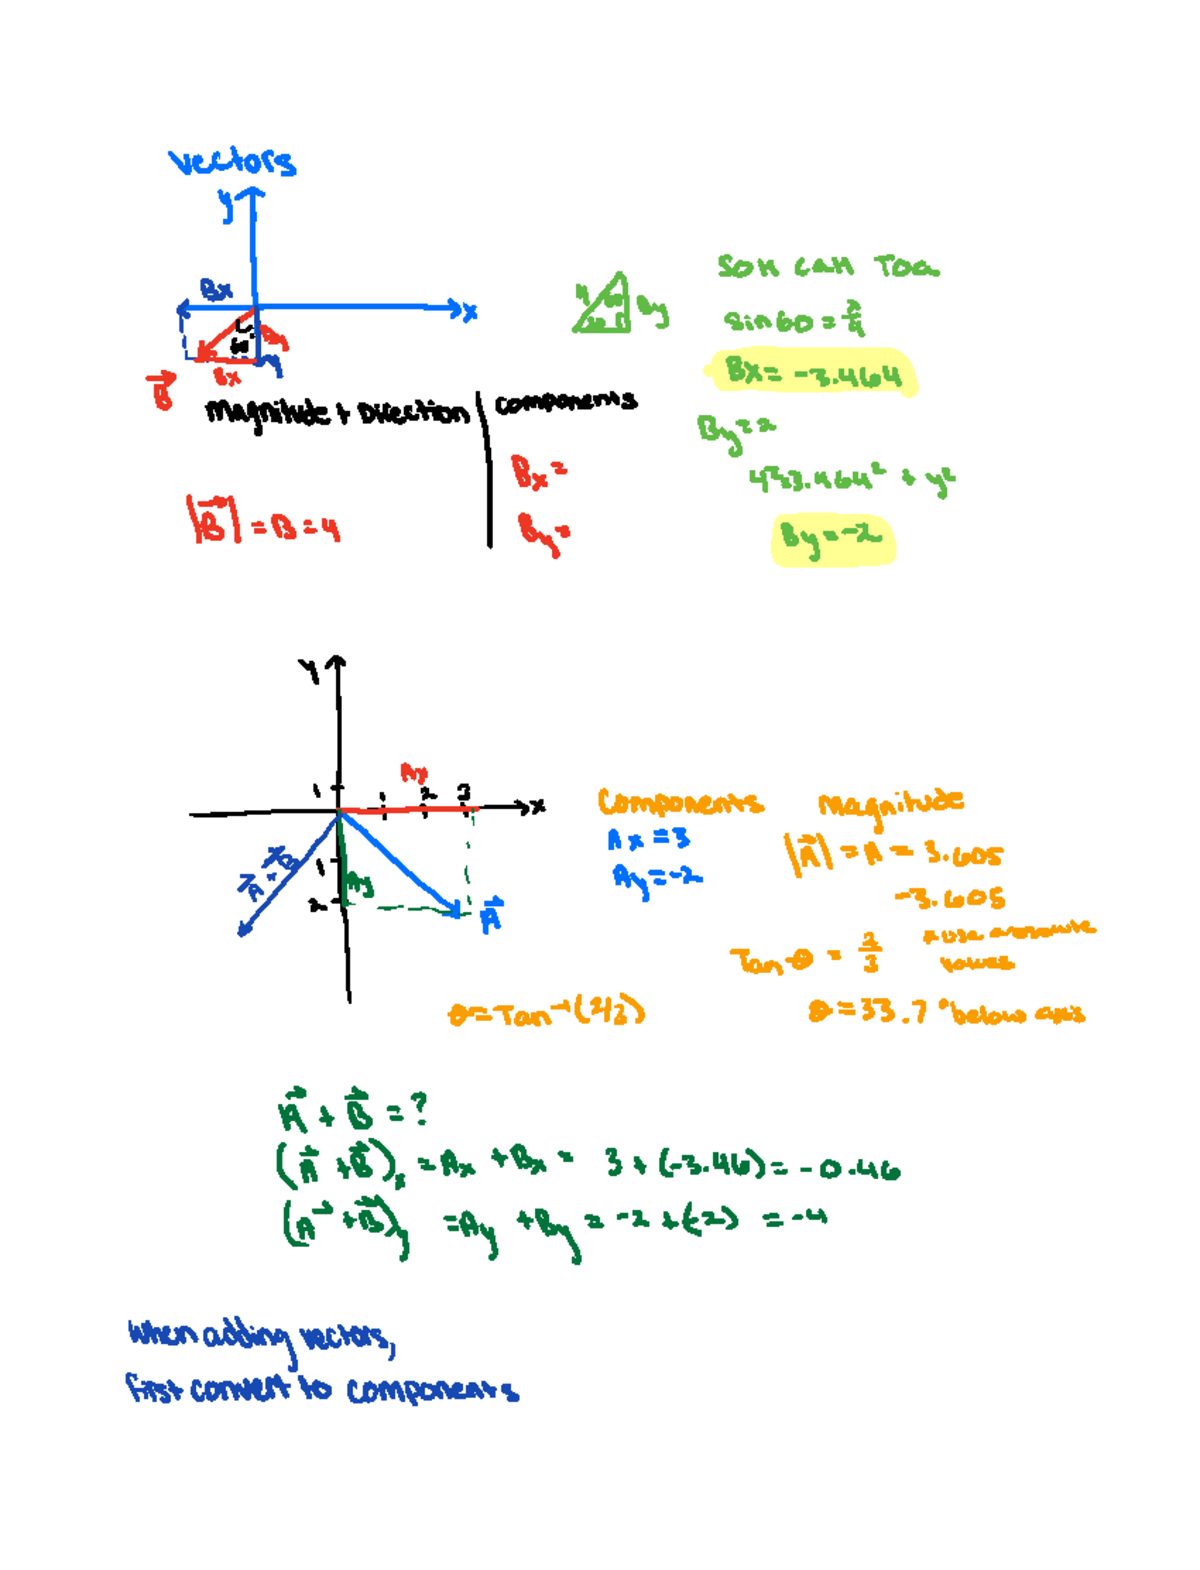 vectors
y
x
Bx
60°
Bx
B⃗
magnitude + Direction
components
|B⃗| = B = 4
Bx =
By =
4
60
30
By
SOH CAH TOA
sin 60 = ?/4
Bx = -3.464
By = 2
4²=3.464² + y²
By = -2
y
x
1
1 2 3
Ax
1
2
Ay
A⃗
A⃗ + B⃗
components
Ax = 3
Ay = -2
magnitude
|A⃗| = A = 3.605
-3.605
Tan θ = 2/3
* use absolute values
θ = Tan⁻¹(2/3)
θ = 33.7° below axis
A⃗ + B⃗ = ?
(A⃗ + B⃗)x = Ax + Bx = 3 + (-3.46) = -0.46
(A⃗ + B⃗)y = Ay + By = -2 + (-2) = -4
When adding vectors,
first convert to components